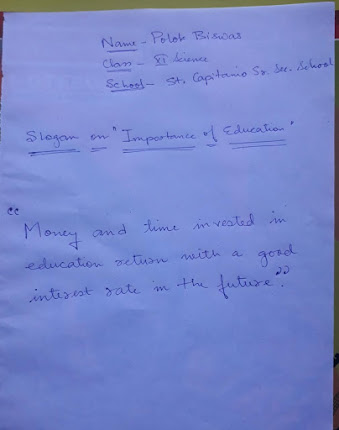 Name - Polok Biswas
Class - XI Science
School - St. Capitanio Sr. Sec. School
Slogan on "Importance of Education"
"Money and time invested in
education return with a good
interest rate in the future."